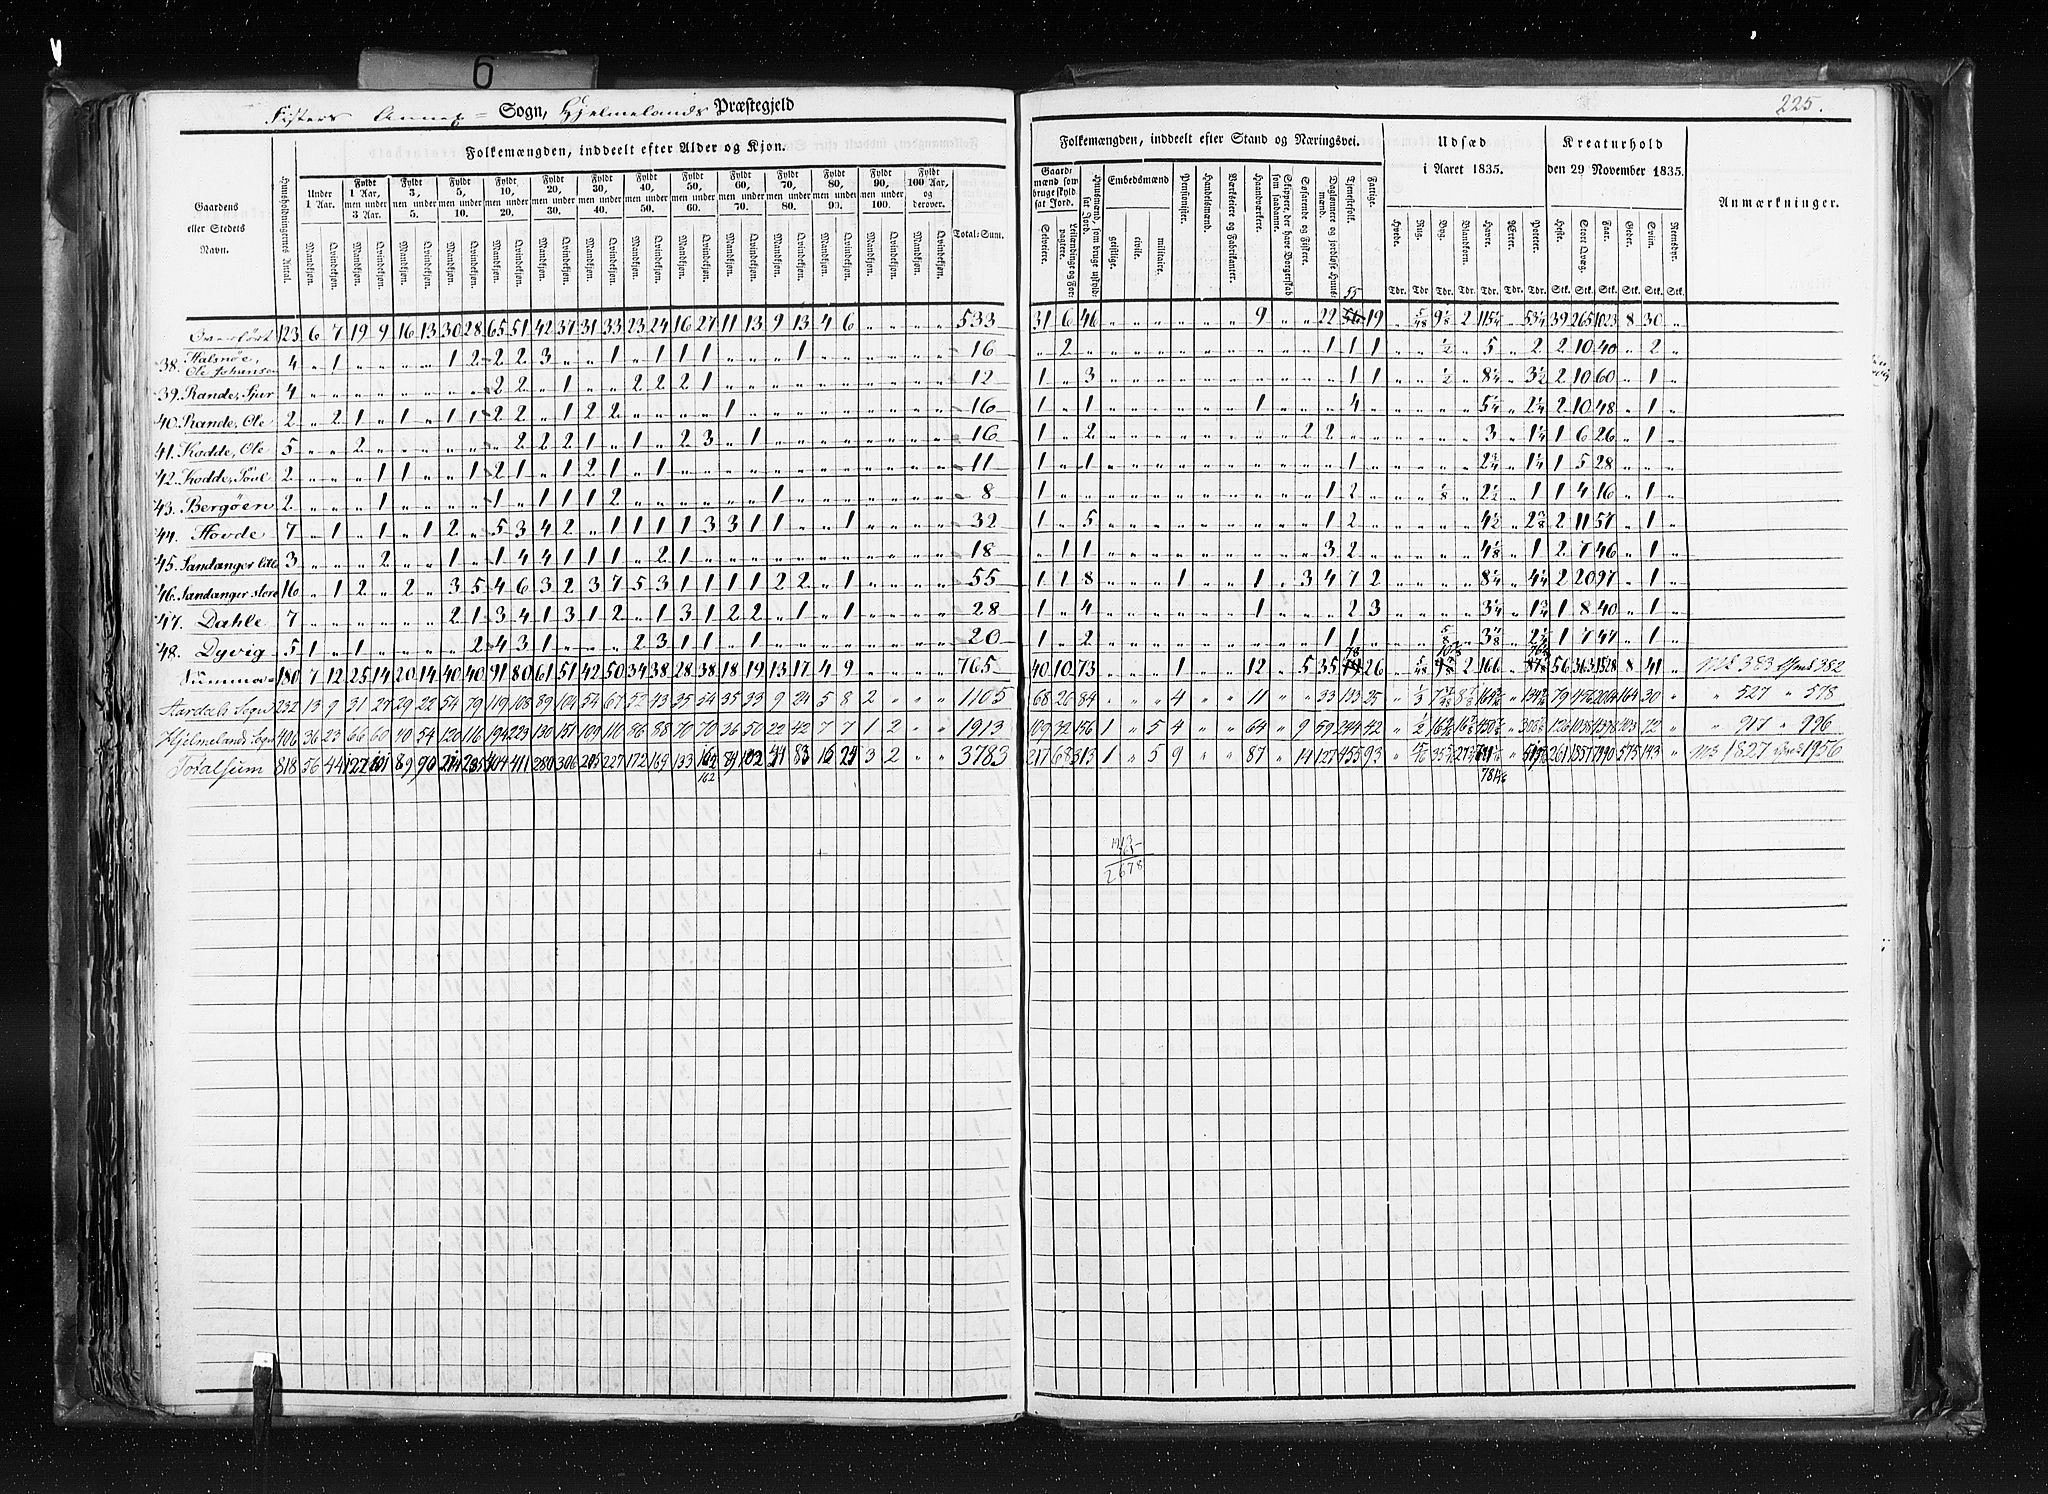 6
Fisters Annex = Sogn, Hjelmelands Præstegjeld
225.
Gaardens eller Stedets Navn.
Huusholdningernes Antal.
Folkemængden, inddeelt efter Alder og Kjøn.
Under 1 Aar.
Fyldt 1 Aar, men under 3 Aar.
Fyldt 3, men under 5.
Fyldt 5, men under 10.
Fyldt 10, men under 20.
Fyldt 20, men under 30.
Fyldt 30, men under 40.
Fyldt 40, men under 50.
Fyldt 50, men under 60.
Fyldt 60, men under 70.
Fyldt 70, men under 80.
Fyldt 80, men under 90.
Fyldt 90, men under 100.
Fyldt 100 Aar, og derover.
Mandkjøn. Qvindekjøn.
Total-Sum.
Folkemængden, inddeelt efter Stand og Næringsvei.
Gaardmænd som bruge skyldsat Jord.
Selveiere.
Leilændinge og Forpagtere.
Huusmænd, som bruge uskyldsat Jord.
Embedsmænd
geistlige. civile. militaire.
Pensionister.
Handelsmænd.
Værkseiere og Fabrikanter.
Haandværkere.
Skippere, der have Borgerskab som saadanne.
Søfarende og Fiskere.
Dagslønnere og jordløse Huusmænd.
Tjenestefolk.
Fattige.
Udsæd i Aaret 1835.
Hvede. Rug. Byg. Blandkorn. Havre. Ærter. Poteter.
Tdr. Tdr. Tdr. Tdr. Tdr. Tdr. Tdr.
Kreaturhold den 29 November 1835.
Heste. Stort Qvæg. Faar. Geder. Sviin. Reensdyr.
Stk. Stk. Stk. Stk. Stk. Stk.
Anmærkninger.
Overført 123 6 7 19 9 16 13 30 28 65 51 42 37 31 33 23 24 16 27 11 13 9 13 4 6 " " " " 533 31 6 46 " " " " " " 9 " " 22 55 19 " 5/48 9 1/8 2 115 1/4 " 53 1/4 39 265 1023 8 30 "
38. Halsnøe, Ole Johansen 4 " 1 " " " " 1 2 2 2 3 " " 1 " 1 1 1 " " " 1 " " " " " " 16 " 2 " " " " " " " " " " 1 1 1 " " 1/2 " 5 " 2 2 10 40 " 2 "
39. Rande, Sjur 4 " " " " " " " " 2 2 " 1 " " 2 2 2 1 " " " " " " " " " " 12 1 " 3 " " " " " " " " " " 1 1 " " 1/2 " 8 1/4 " 3 1/2 2 10 60 " 1 "
40. Rande, Ole 2 " 2 1 " 1 " 1 1 2 2 " 1 2 2 " " " " 1 " " " " " " " " " 16 1 " 1 " " " " " " 1 " " " 4 " " " " " 5 1/4 " 2 1/4 2 10 48 " 1 "
41. Kodde, Ole 5 " " 2 " " " " " " 2 2 2 1 " 1 " 2 3 " 1 " " " " " " " " 16 1 " 2 " " " " " " " " 2 2 " " " " " " 3 " 1 1/4 1 6 26 " 1 "
42. Kodde, Poul 2 " " " 1 1 " " 1 2 1 " 1 2 1 " 1 " " " " " " " " " " " " 11 1 " 1 " " " " " " " " " " 1 " " " " " 2 3/4 " 1 1/4 1 5 28 " " "
43. Bergøen 2 " " " 1 " " " " 1 " 1 1 1 2 " " " " " " 1 " " " " " " " 8 1 " " " " " " " " " " " 1 2 " " " 1/8 " 2 1/2 " 1 1 4 16 " 1 "
44. Hovde 7 " 1 " 1 " 1 2 " 5 3 4 2 " 1 1 1 1 3 3 1 1 " " 1 " " " " 32 1 " 5 " " " " " " " " " 1 2 " " " " " 4 1/2 " 2 3/8 2 11 57 " 1 "
45. Sandanger litle 3 " " " 2 " " 1 " 1 4 4 1 1 1 " 2 1 " " " " " " " " " " " 18 " 1 1 " " " " " " " " " 3 2 " " " " " 4 1/8 " 1 2 7 46 " 1 "
46. Sandanger store 16 " 1 2 " 2 " 3 5 4 6 3 2 3 7 5 3 1 1 1 1 2 2 " 1 " " " " 55 1 1 8 " " " 1 " " 1 " 3 4 7 2 " " " " 8 1/4 " 4 1/4 2 20 97 " 1 "
47. Dahle 7 " " " " " " 2 1 3 4 1 3 1 2 " 1 3 1 2 2 " 1 " 1 " " " " 28 1 " 4 " " " " " " 1 " " " 2 3 " " " " 3 1/4 " 1 3/4 1 8 40 " 1 "
48. Dyvig 5 1 " 1 " " " " 2 4 3 1 " " " 2 3 1 1 " 1 " " " " " " " " 20 1 " 2 " " " " " " " " " 1 1 " " " 5/8 " 3 1/8 " 2 1/4 1 7 47 " 1 "
Summa 180 7 12 25 14 20 14 40 40 91 80 61 51 42 50 34 38 28 38 18 19 13 17 4 9 " " " " 765 40 10 73 " " " 1 " " 12 " 5 35 78 26 " 5/48 10 7/8 2 166 " 76 56 363 1528 8 41 " Mk 383 Qvk 382
Aardals Sogn 232 13 9 31 27 29 22 54 79 119 108 89 104 54 67 52 43 35 54 35 33 9 24 5 8 2 " " " 1105 68 26 84 " " " 4 " " 11 " " 33 133 25 " 1/3 79 456 2064 164 30 " " 527 " 578
Hjelmelands Sogn 406 36 23 66 60 40 54 120 116 194 223 130 151 109 110 86 88 70 70 36 50 22 42 7 7 1 2 " " 1913 109 32 156 1 " 5 4 " " 64 " 9 59 244 42 " 1/2 126 1038 4398 403 72 " " 917 " 996
Totalsum 818 56 44 122 101 89 90 214 235 404 411 280 306 205 227 172 169 133 162 89 102 44 83 16 24 3 2 " " 3783 217 68 313 1 " 5 9 " " 87 " 14 127 455 93 " 261 1857 7990 575 143 " Mk 1827 Qvk 1956
162
1913
765
2678